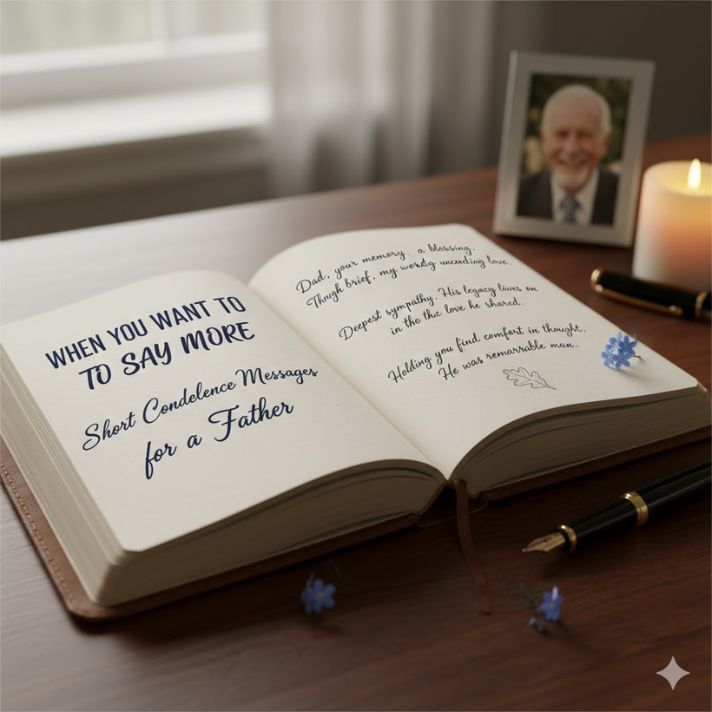 WHEN YOU WANT TO
TO SAY MORE
Short Condelence Messages
for a Father
Dad, your memory. a blessing.
Though brief, my wordy unending love.
Deepest sympathy. His legacy lives on
in the the love he shared.
Holding you find comfort in thought.
He was remarrable man.